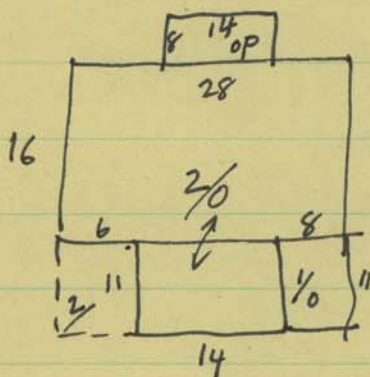 8 14 OP
28
16
2/0
6 8
2/ 11 1/0 11
14